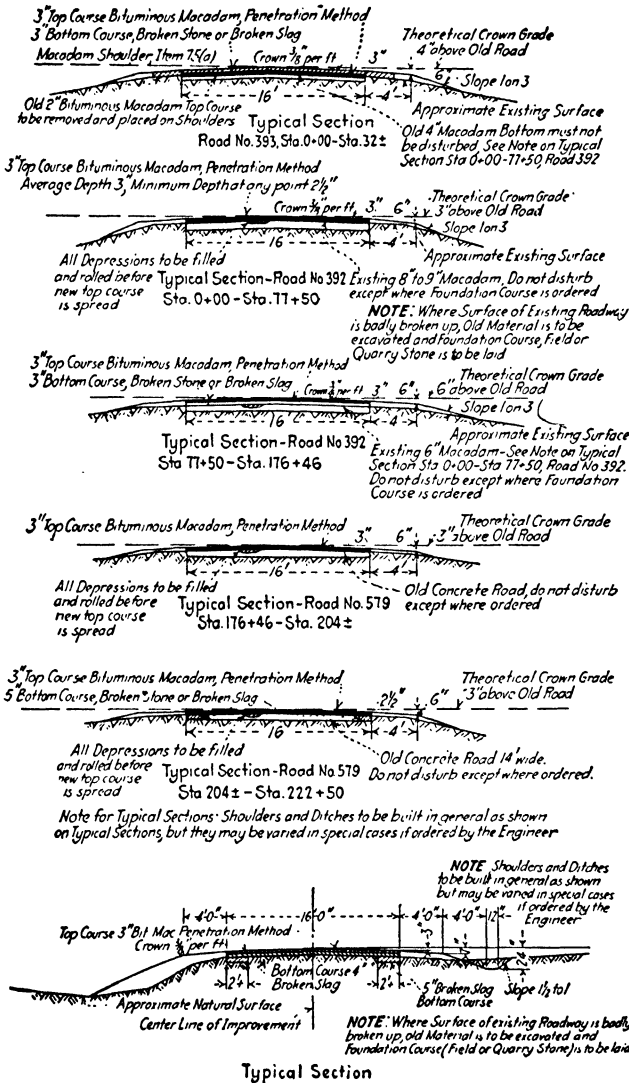 3" Top Course Bituminous Macadam, Penetration Method
3" Bottom Course, Broken Stone or Broken Slag
Macadam Shoulder Item 75(a)
Crown 3/8" per ft
3"
Theoretical Crown Grade
4" above Old Road
6"
Slope 1 on 3
16'
4'
Old 2" Bituminous Macadam Top Course
to be removed and placed on Shoulders
Typical Section
Road No. 393, Sta. 0+00-Sta. 32±
Approximate Existing Surface
Old 4" Macadam Bottom must not
be disturbed, See Note on Typical
Section Sta 0+00-77+50, Road 392
3" Top Course Bituminous Macadam, Penetration Method
Average Depth 3", Minimum Depth at any point 2½"
Crown per ft.
3"
6"
Theoretical Crown Grade
3" above Old Road
Slope 1 on 3
16
4'
Approximate Existing Surface
All Depressions to be filled
and rolled before
new top course
is spread
Typical Section-Road No 392
Sta. 0+00-Sta. 77+50
Existing 8" to 9" Macadam, Do not disturb
except where Foundation Course is ordered
NOTE: Where Surface of Existing Roadway
is badly broken up, Old Material is to be
excavated and Foundation Course, Field or
Quarry Stone is to be laid
3" Top Course Bituminous Macadam, Penetration Method
3" Bottom Course, Broken Stone or Broken Slag
Crown per ft
3"
6"
Theoretical Crown Grade
6" above Old Road
Slope 1 on 3
16
4'
Approximate Existing Surface
Typical Section-Road No 392
Sta 77+50-Sta. 176+46
Existing 6" Macadam-See Note on Typical
Section Sta 0+00-Sta 77+50, Road No. 392.
Do not disturb except where Foundation
Course is ordered
3" Top Course Bituminous Macadam, Penetration Method
3"
6"
Theoretical Crown Grade
3" above Old Road
16'
4'
All Depressions to be filled
and rolled before
new top course
is spread
Typical Section-Road No. 579
Sta. 176+46-Sta. 204±
Old Concrete Road, do not disturb
except where ordered
3" Top Course Bituminous Macadam, Penetration Method
5" Bottom Course, Broken Stone or Broken Slag
2½"
6"
Theoretical Crown Grade
3" above Old Road
16
4'
All Depressions to be filled
and rolled before
new top course
is spread
Typical Section-Road No 579
Sta 204±-Sta. 222+50
Old Concrete Road 14' wide.
Do not disturb except where ordered.
Note for Typical Sections: Shoulders and Ditches to be built in general as shown
on Typical Sections, but they may be varied in special cases if ordered by the Engineer
NOTE Shoulders and Ditches
to be built in general as shown
but may be varied in special cases
if ordered by the
Engineer
4'0"
16'0"
4'0"
4'0"
12"
Top Course 3" Bit Mac Penetration Method
Crown per ft
3"
24"
2'
Bottom Course 4"
Broken Slag
2'
5" Broken Slag
Bottom Course
Slope 1½ to 1
Approximate Natural Surface
Center Line of Improvement
NOTE: Where Surface of existing Roadway is badly
broken up, old Material is to be excavated and
Foundation Course (Field or Quarry Stone) is to be laid
Typical Section